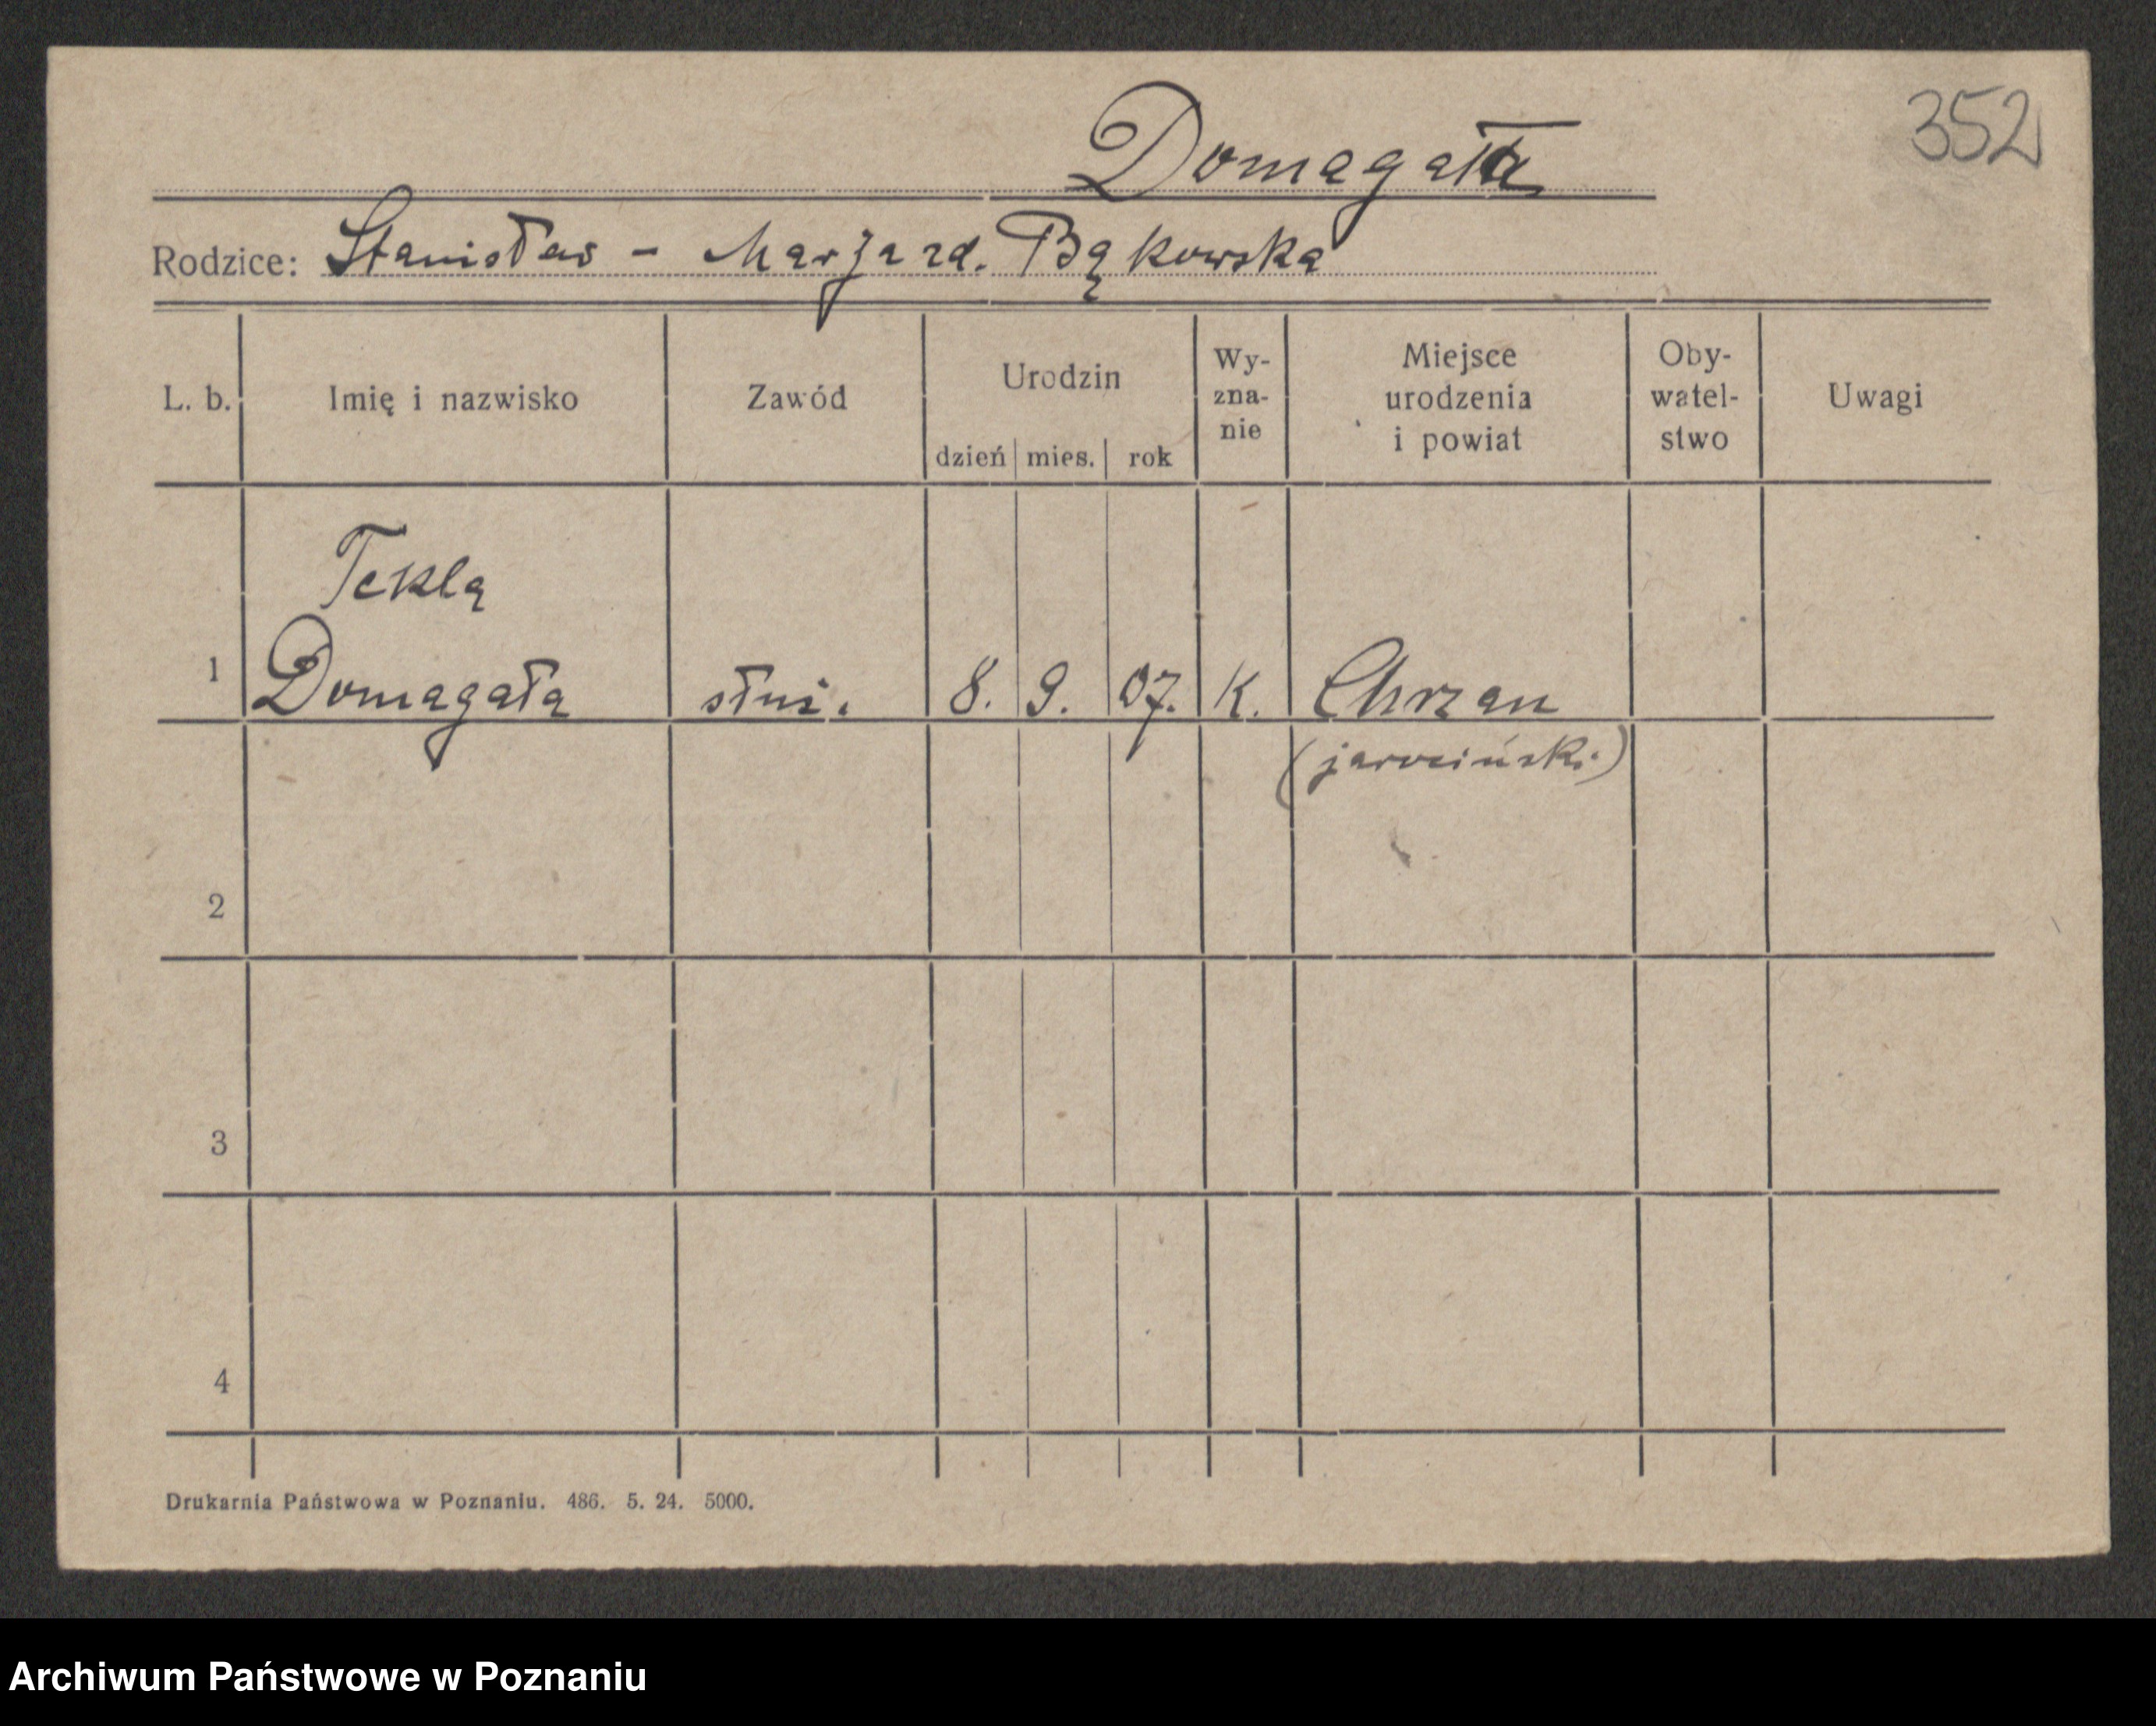 352
Domagała
Rodzice: Stanisław - Marja zd. Bąkowska
L. b. Imię i nazwisko Zawód Urodzin dzień mies. rok Wy-zna-nie Miejsce urodzenia i powiat Oby-watel-stwo Uwagi
Tekla
1 Domagała służ. 8. 9. 07. K. Chrzan
(jarociński)
2
3
4
Drukarnia Państwowa w Poznaniu. 486. 5. 24. 5000.
Archiwum Państwowe w Poznaniu